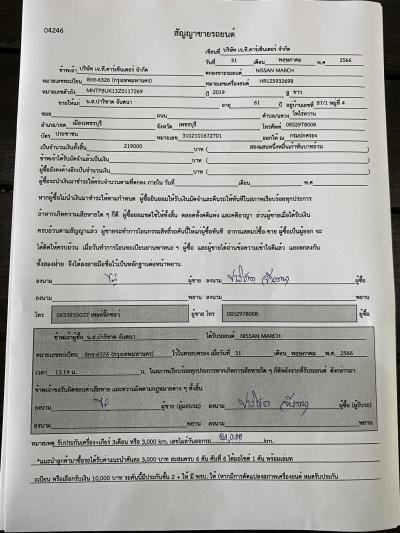 04246
สัญญาขายรถยนต์
เขียนที่ บริษัท เจ.ที.คาร์เซ็นเตอร์ จำกัด
วันที่ 31 เดือน พฤษภาคม พ.ศ. 2566
ข้าพเจ้า บริษัท เจ.ที.คาร์เซ็นเตอร์ จำกัด ตกลงขายรถยนต์ NISSAN MARCH
หมายเลขทะเบียน 8กธ-6326 (กรุงเทพมหานคร) หมายเลขเครื่องยนต์ HR12593269B
หมายเลขตัวถัง MNTFBUK13Z0117269 ปี 2019 สี ขาว
ขายให้แก่ น.ส.ปาริชาต จันตนา อายุ 61 ปี อยู่บ้านเลขที่ 87/1 หมู่ที่ 4
ซอย ถนน ตำบล/แขวง ไร่โรหวาน
อำเภอ/เขต เมืองเพชรบุรี จังหวัด เพชรบุรี โทรศัพท์ 0852978008
บัตร ประชาชน หมายเลข 3102101672701 ออกให้ ณ กรมปกครอง
เป็นจำนวนเงินทั้งสิ้น 219000 บาท ( สองแสนหนึ่งหมื่นเก้าพันบาทถ้วน )
ข้าพเจ้าได้รับมัดจำแล้วเป็นเงิน บาท ( )
ผู้ซื้อยังคงค้างอีกเป็นจำนวนเงิน บาท ( )
ผู้ซื้อจะนำเงินมาชำระให้ครบจำนวนตามที่ตกลง ภายใน วันที่ เดือน พ.ศ.
หากผู้ซื้อไม่นำเงินมาชำระให้ตามกำหนด ผู้ซื้อยินยอมให้รับเงินมัดจำและคืนรถให้ทันทีในสภาพเรียบร้อยทุกประการ
ถ้าหากเกิดความเสียหายใด ๆ ก็ดี ผู้ซื้อยอมชดใช้ให้ทั้งสิ้น ตลอดทั้งคดีแพ่ง และคดีอาญา ส่วนผู้ขายเมื่อได้รับเงิน
ครบถ้วนตามสัญญาแล้ว ผู้ขายจะทำการโอนกรรมสิทธิ์รถคันนี้ให้แก่ผู้ซื้อทันที อากรแสตมป์ซื้อ-ขาย ผู้ซื้อเป็นผู้ออก จะ
ได้คิดให้ครบถ้วน เมื่อวันทำการโอนทะเบียนยานพาหนะ ฯ ผู้ซื้อ และผู้ขายได้อ่านข้อความเข้าใจดีแล้ว และตกลงกัน
ทั้งสองฝ่าย จึงได้ลงลายมือชื่อไว้เป็นหลักฐานต่อหน้าพยาน
ลงนาม ผู้ขาย ลงนาม ปาริชาต จันตนา ผู้ซื้อ
ลงนาม พยาน ลงนาม พยาน
โทร 0633935027 โทร 0852978008
ข้าพเจ้าผู้ซื้อ น.ส.ปาริชาต จันตนา ได้รับรถยนต์ NISSAN MARCH
หมายเลขทะเบียน 8กธ-6326 (กรุงเทพมหานคร) ไว้ในครอบครอง เมื่อวันที่ 31 เดือน พฤษภาคม พ.ศ. 2566
เวลา 13.19 น. น. ในสภาพเรียบร้อยทุกประการหากเกิดการเสียหายใด ๆ ก็ดีหลังจากที่รับรถยนต์ ดังกล่าวมา
ข้าพเจ้าขอรับผิดชอบค่าเสียหาย และความผิดตามกฎหมายต่าง ๆ ทั้งสิ้น
ลงนาม ผู้ขาย (ผู้มอบรถ) ลงนาม ปาริชาต จันตนา ผู้ซื้อ (ผู้รับรถ)
ลงนาม พยาน ลงนาม พยาน
หมายเหตุ รับประกันเครื่อง+เกียร์ 3เดือน หรือ 3,000 km. เลขไมล์วันออกรถ km.
*แนะนำลูกค้ามาซื้อรถได้รับค่าแนะนำคันละ 3,000 บาท สะสมครบ 6 คัน คันที่ 6 ได้มอไซค์ 1 คัน พร้อมเลมท
ะเบียน หรือเลือกรับเงิน 10,000 บาท รถคันนี้มีประกันชั้น 2 + ให้ มี พรบ. ให้ (หากมีการดัดแปลงสภาพเครื่องยนต์ หมดรับประกัน